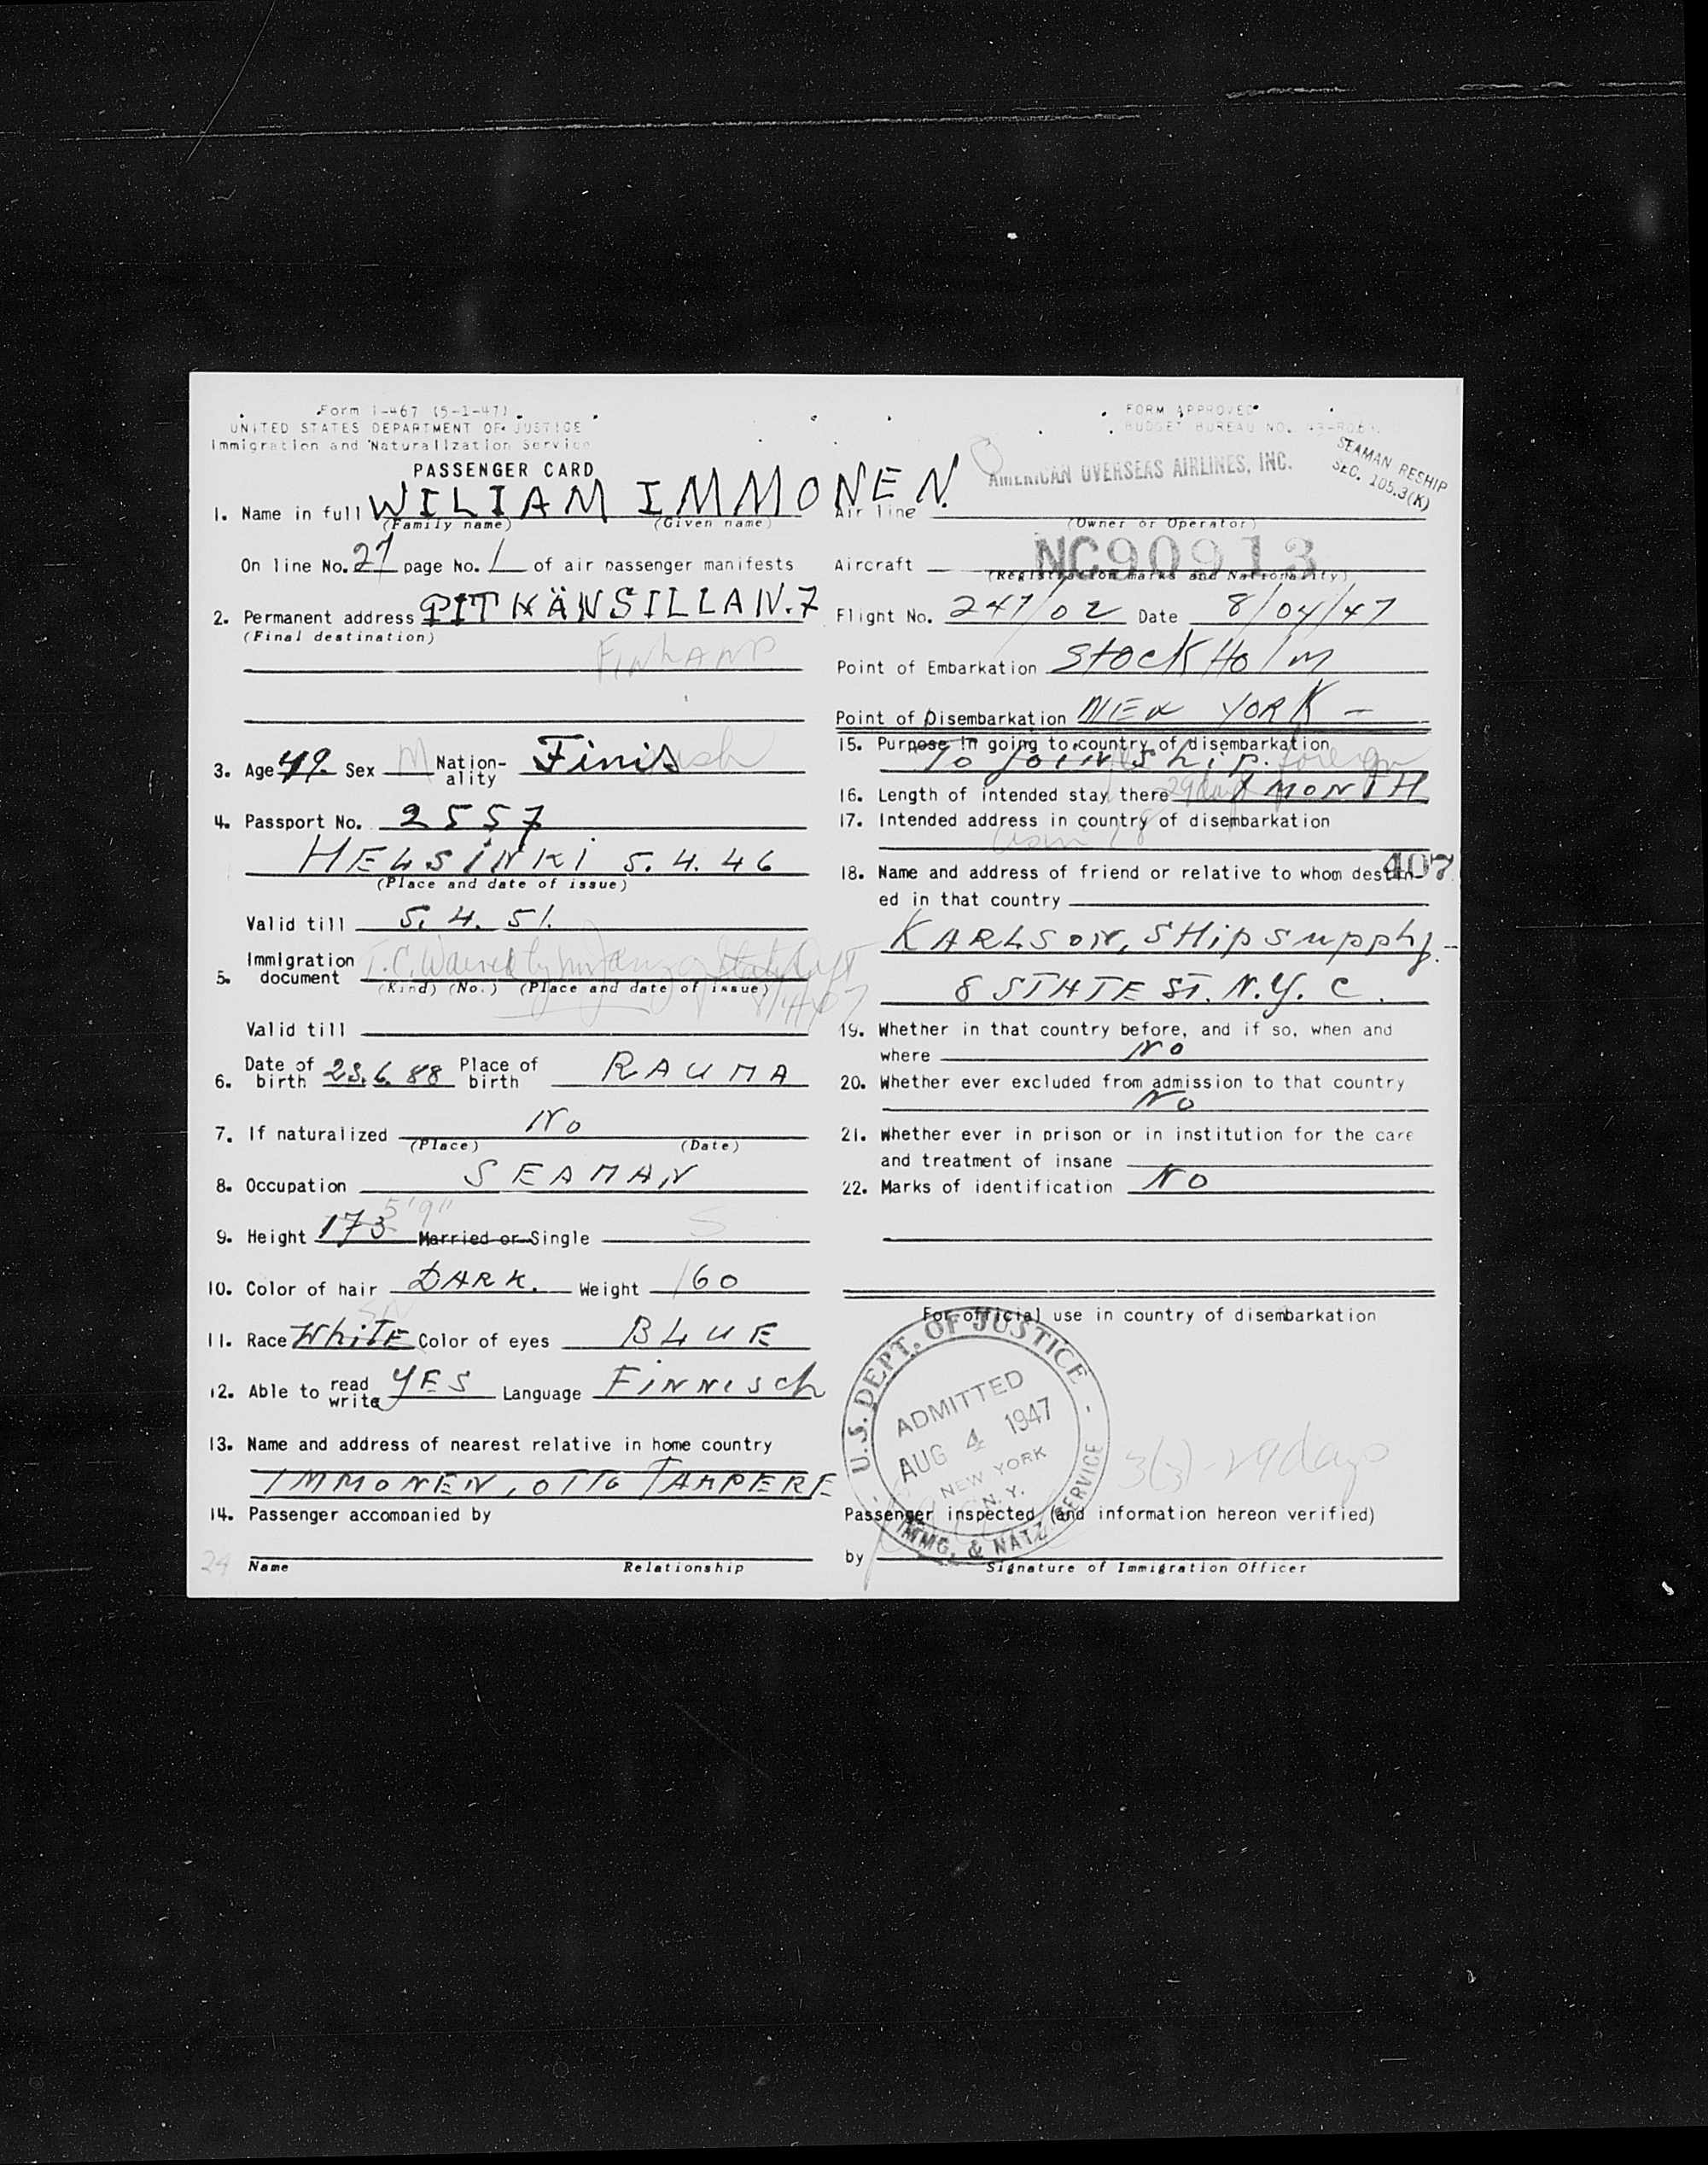 Form I-467 (5-1-47)
UNITED STATES DEPARTMENT OF JUSTICE
Immigration and Naturalization Service
PASSENGER CARD
1. Name in full WILIAM IMMONEN
(Family name) (Given name)
On line No. 27 page No. 1 of air passenger manifests
2. Permanent address PITKÄNSILLAN.7
(Final destination)
FINLAND
3. Age 49 Sex M Nation-ality Finissh
4. Passport No. 2557
HELSINKI 5.4.46
(Place and date of issue)
Valid till 5.4.51.
5. Immigration document T.C. Waived by
(Kind) (No.) (Place and date of issue)
Valid till
6. Date of birth 23.6.88 Place of birth RAUMA
7. If naturalized No
(Place) (Date)
8. Occupation SEAMAN
5'9"
9. Height 173 Married or Single S
10. Color of hair DARK. Weight 160
11. Race WhiTE Color of eyes BLUE
12. Able to read write YES Language FINNISch
13. Name and address of nearest relative in home country
IMMONEN, OTTO TAMPERE
14. Passenger accompanied by
24
Name Relationship
FORM APPROVED
BUDGET BUREAU NO.
SEAMAN RESHIP
SEC. 105.3(K)
AMERICAN OVERSEAS AIRLINES, INC.
Air line
(Owner or Operator)
Aircraft NC90913
(Registration marks and Nationality)
Flight No. 247/02 Date 8/04/47
Point of Embarkation STOCKHOlM
Point of Disembarkation NEW YORK -
15. Purpose in going to country of disembarkation
To JOiN Ship. foreign
16. Length of intended stay there 29 days 1 MONTH
17. Intended address in country of disembarkation
18. Name and address of friend or relative to whom destin-
407
ed in that country
KARLSON, SHip supply.-
8 STATE ST. N.Y.C.
19. Whether in that country before, and if so, when and
where NO
20. Whether ever excluded from admission to that country
NO
21. Whether ever in prison or in institution for the care
and treatment of insane
22. Marks of identification NO
For official use in country of disembarkation
U.S. DEPT. OF JUSTICE
ADMITTED
AUG 4 1947
NEW YORK
N.Y.
IMMG. & NATZ. SERVICE
3(3)-29 days
Passenger inspected (and information hereon verified)
by
Signature of Immigration Officer